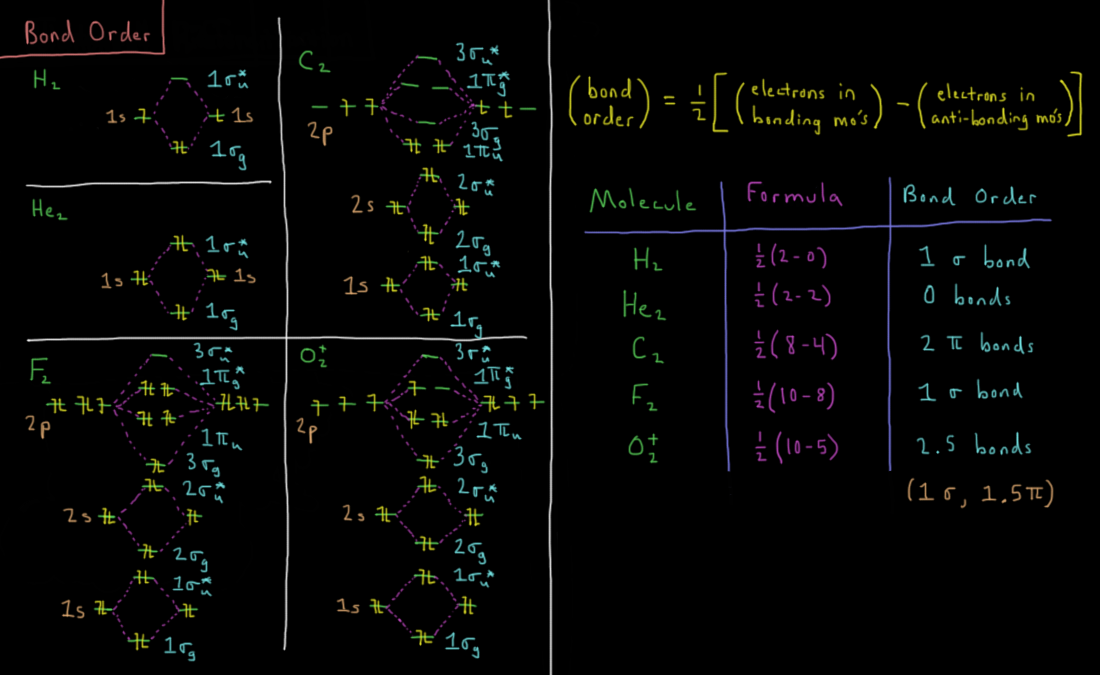 Bond Order
H₂
1σᵤ*
1s 1s
1σg
He₂
1σᵤ*
1s 1s
1σg
C₂
3σᵤ*
1πg*
2p
3σg
1πᵤ
2σᵤ*
2s
2σg
1σᵤ*
1s
1σg
F₂
3σᵤ*
1πg*
2p
1πᵤ
3σg
2σᵤ*
2s
2σg
1σᵤ*
1s
1σg
O₂⁺
3σᵤ*
1πg*
2p
1πᵤ
3σg
2σᵤ*
2s
2σg
1σᵤ*
1s
1σg
(bond order) = ½[(electrons in bonding mo's) − (electrons in anti-bonding mo's)]
Molecule Formula Bond Order
H₂ ½(2-0) 1 σ bond
He₂ ½(2-2) 0 bonds
C₂ ½(8-4) 2 π bonds
F₂ ½(10-8) 1 σ bond
O₂⁺ ½(10-5) 2.5 bonds
(1σ, 1.5π)